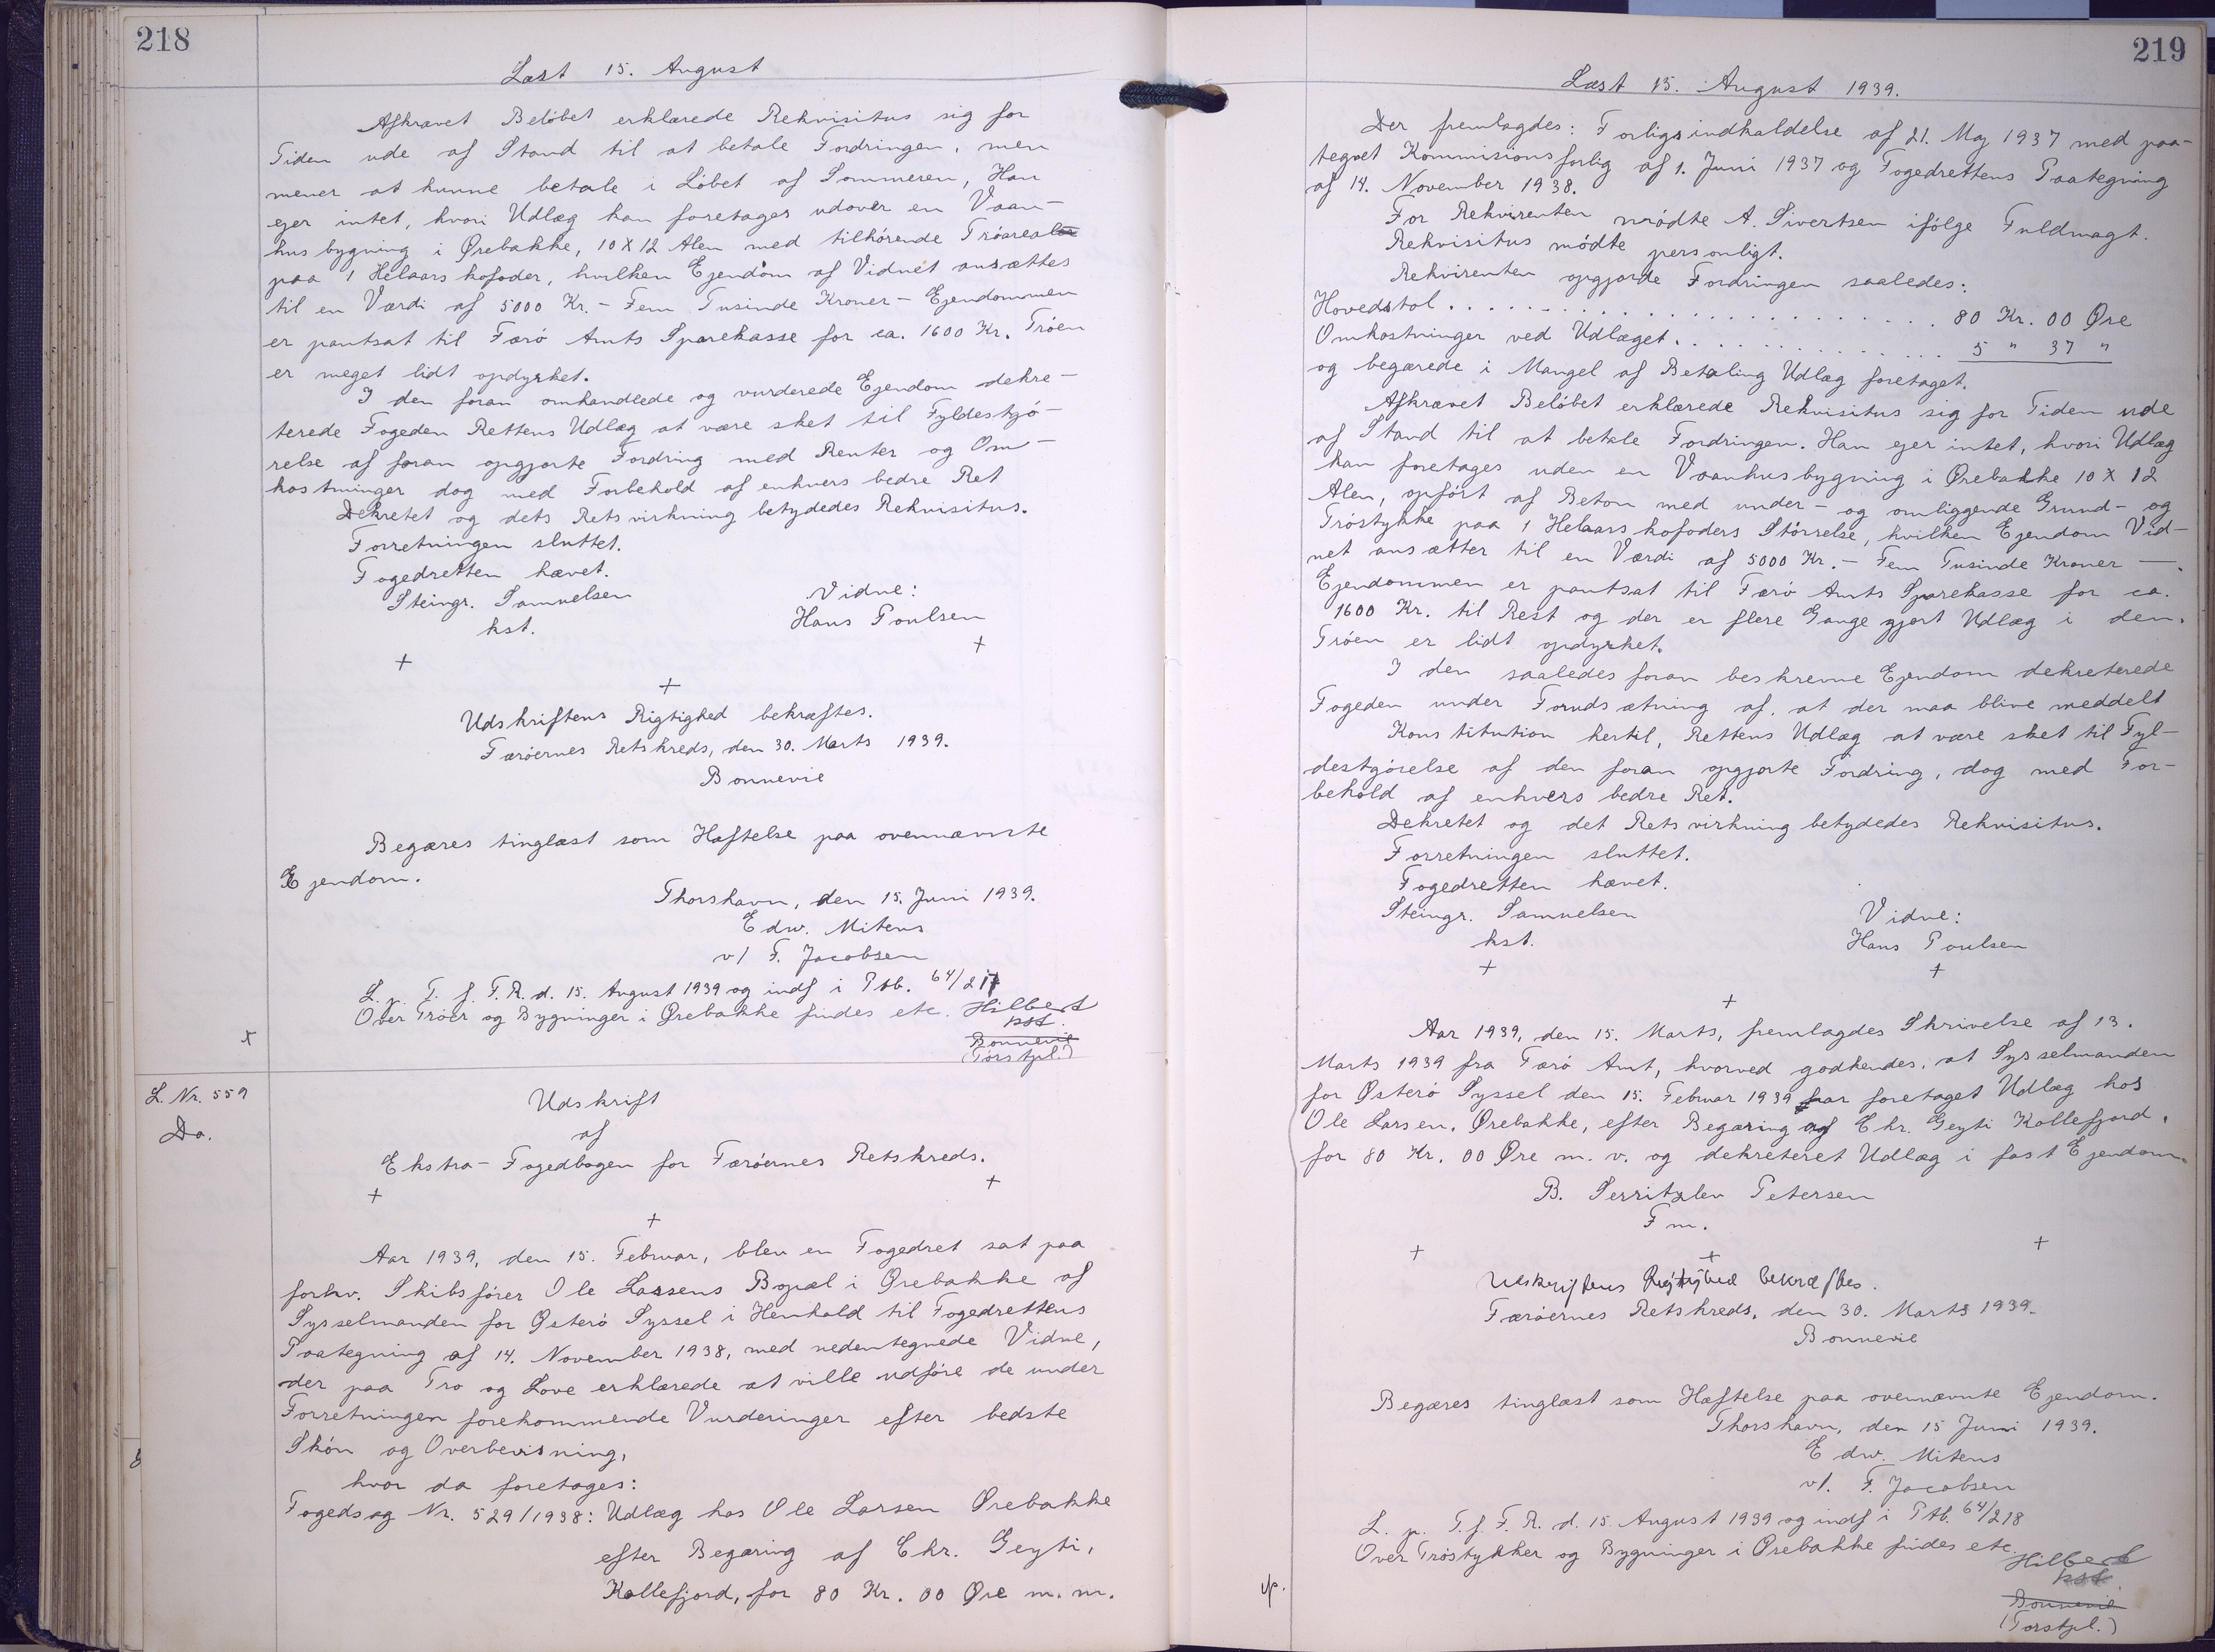 218
Læst 15. August
Afkrævet Beløbet erklærede Rekvisitus sig for
Tiden ude af Stand til at betale Fordringen, men
mener at kunne betale i Løbet af Sommeren, Han
ejer intet, hvori Udlæg kan foretages udover en Vaan-
husbygning i Ørebakke, 10 X 12 Alen med tilhørende Trøareal
paa 1 Helaarskofoder, hvilken Ejendom af Vidnet ansættes
til en Værdi af 5000 Kr. - Fem Tusinde Kroner - Ejendommen
er pantsat til Færø Amts Sparekasse for ca. 1600 Kr. Trøen
er meget lidt opdyrket.
I den foran omhandlede og vurderede Ejendom dekre-
terede Fogeden Rettens Udlæg at være sket til Fyldestgjø-
relse af foran opgjorte Fordring med Renter og Om-
kostninger dog med Forbehold af enhvers bedre Ret
Dekretet og dets Retsvirkning betydedes Rekvisitus.
Forretningen sluttet.
Fogedretten hævet.
Steingr. Samuelsen Vidne:
kst. Hans Poulsen
+ +
+
Udskriftens Rigtighed bekræftes.
Færøernes Retskreds, den 30. Marts 1939.
Bonnevie
Begæres tinglæst som Hæftelse paa ovennævnte
Ejendom.
Thorshavn, den 15. Juni 1939.
Edw. Mitens
v/ F. Jacobsen
L. p. T. f. F. R. d. 15. August 1939 og indf i Ptb. 64/217
Over Trøer og Bygninger i Ørebakke findes etc. Hilbert
kst.
Bonnevie
(Torstpl.)
x
L. Nr. 559
Do.
Udskrift
af
Ekstra-Fogedbogen for Færøernes Retskreds.
+ +
+
Aar 1939, den 15. Februar, blev en Fogedret sat paa
forhv. Skibsfører Ole Larsens Bopæl i Ørebakke af
Sysselmanden for Østerø Syssel i Henhold til Fogedrettens
Paategning af 14. November 1938, med nedentegnede Vidne,
der paa Tro og Love erklærede at ville udføre de under
Forretningen forekommende Vurderinger efter bedste
Skøn og Overbevisning,
hvor da foretages:
Fogedsag Nr. 529/1938: Udlæg hos Ole Larsen Ørebakke
efter Begæring af Chr. Geyti,
Kollefjord, for 80 Kr. 00 Øre m. m.
219
Læst 15. August 1939.
Der fremlagdes: Forligsindkaldelse af 21. Maj 1937 med paa-
tegnet Kommisionsforlig af 1. Juni 1937 og Fogedrettens Paategning
af 14. November 1938.
For Rekvirenten mødte A. Sivertsen ifølge Fuldmagt.
Rekvisitus mødte personligt.
Rekvirenten opgjorde Fordringen saaledes:
Hovedstol . . . . . . . . . . . . . . . . . . . . 80 Kr. 00 Øre
Omkostninger ved Udlæget . . . . . . . . . . . . 5 " 37 "
og begærede i Mangel af Betaling Udlæg foretaget.
Afkrævet Beløbet erklærede Rekvisitus sig for Tiden ude
af Stand til at betale Fordringen. Han ejer intet, hvori Udlæg
kan foretages uden en Vaanhusbygning i Ørebakke 10 X 12
Alen, opført af Beton med under- og omliggende Grund- og
Trøstykke paa 1 Helaarskofoders Størrelse, hvilken Ejendom Vid-
net ansætter til en Værdi af 5000 Kr. - Fem Tusinde Kroner -.
Ejendommen er pantsat til Færø Amts Sparekasse for ca.
1600 Kr. til Rest og der er flere Gange gjort Udlæg i den.
Trøen er lidt opdyrket.
I den saaledes foran beskrevne Ejendom dekreterede
Fogeden under Forudsætning af, at der maa blive meddelt
Konstitution hertil, Rettens Udlæg at være sket til Fyl-
destgørelse af den foran opgjorte Fordring, dog med For-
behold af enhvers bedre Ret.
Dekretet og det Retsvirkning betydedes Rekvisitus.
Forretningen sluttet.
Fogedretten hævet.
Steingr. Samuelsen Vidne:
kst. Hans Poulsen
+ +
+
Aar 1939, den 15. Marts, fremlagdes Skrivelse af 13.
Marts 1939 fra Færø Amt, hvorved godkendes, at Sysselmanden
for Østerø Syssel den 15. Februar 1939 har foretaget Udlæg hos
Ole Larsen, Ørebakke, efter Begæring af Chr. Geyti Kollefjord,
for 80 Kr. 00 Øre m. v. og dekreteret Udlæg i fast Ejendom.
B. Serritzlev Petersen
Fm.
+ + +
Udskriftens Rigtighed bekræftes.
Færøernes Retskreds, den 30. Marts 1939.
Bonnevie
Begæres tinglæst som Hæftelse paa ovennævnte Ejendom.
Thorshavn, den 15 Juni 1939.
Edw. Mitens
v/. F. Jacobsen
L. p. T. f. F. R. d. 15. August 1939 og indf i Ptb. 64/218
Over Trøstykker og Bygninger i Ørebakke findes etc.
Hilbert
kst.
Bonnevie
(Torstpl.)